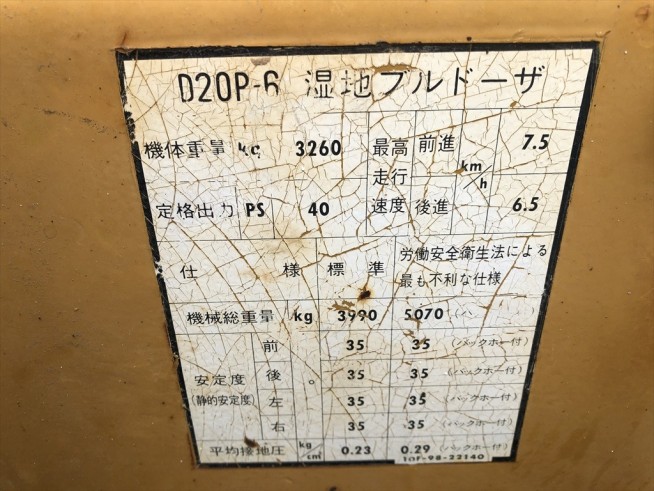 D20P-6 湿地ブルドーザ
機体重量 kg 3260 最高走行速度 前進 km/h 7.5
定格出力 PS 40 後進 6.5
仕様 標準 労働安全衛生法による
最も不利な仕様
機械総重量 kg 3990 5070 (バ
前 35 35 (バックホー付)
安定度 後 ° 35 35 (バックホー付)
(静的安定度) 左 35 35 (バックホー付)
右 35 35 (バックホー付)
平均接地圧 kg/cm 0.23 0.29 (バックホー付)
10F-98-22140